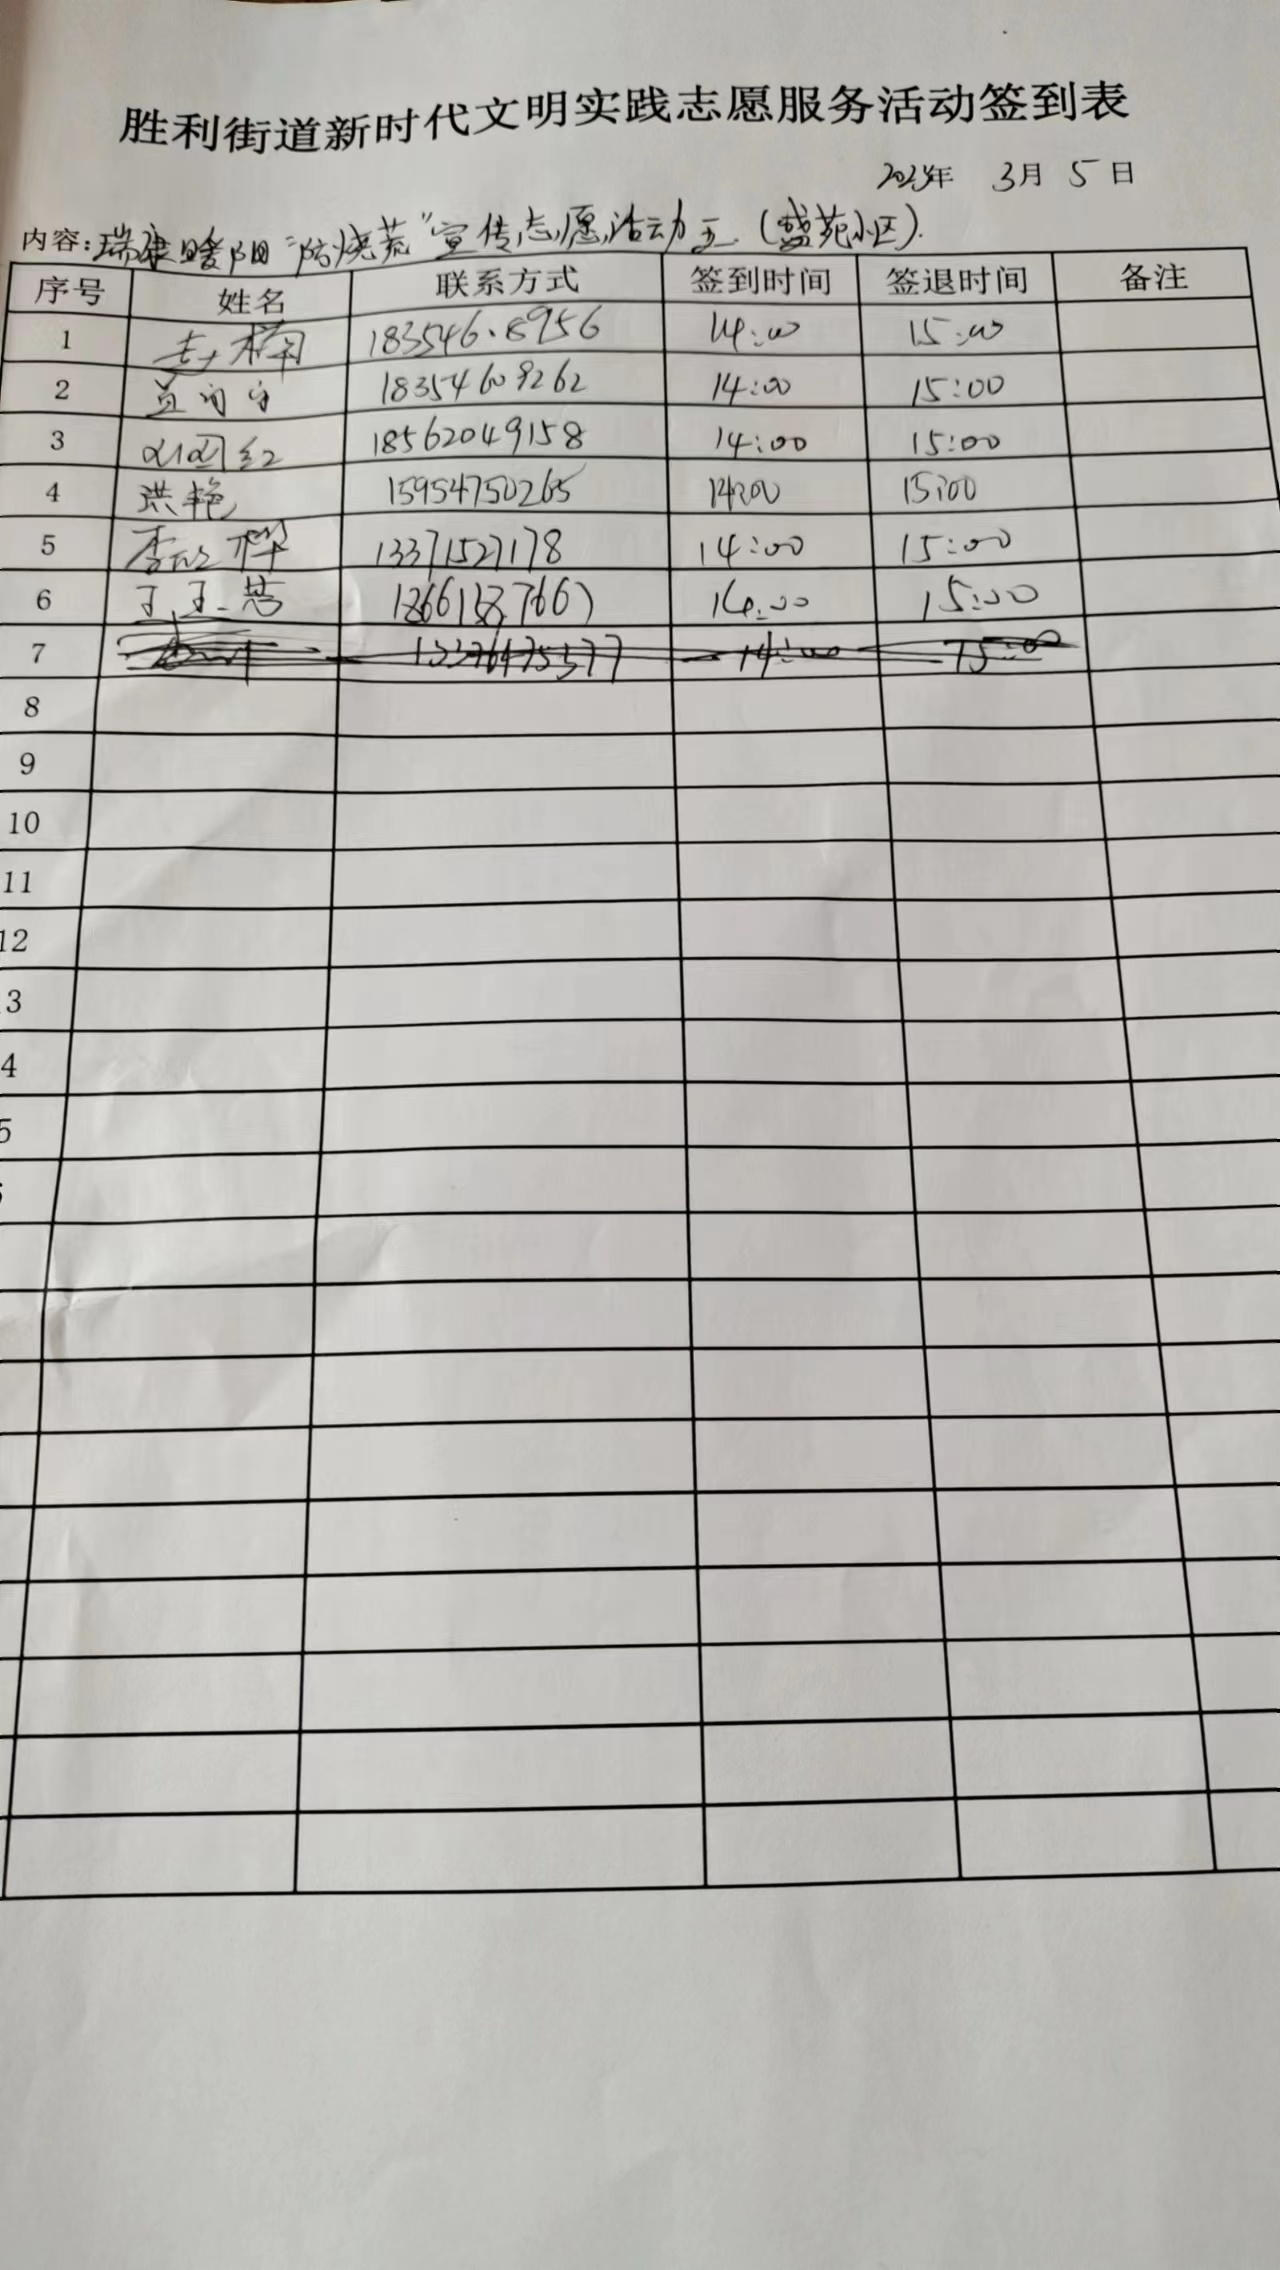 胜利街道新时代文明实践志愿服务活动签到表
3月 5日
内容：瑞康暖阳“防烧荒”宣传志愿活动五（盛苑小区）.
序号 姓名 联系方式 签到时间 签退时间 备注
1 14:00 15:00
2 18354609262 14:00 15:00
3 红 18562049158 14:00 15:00
4 洪艳 15954750265 14:00 15:00
5 李 桦 13371527178 14:00 15:00
6 王玉慧 18661587667 14:00 15:00
7 14:00 15:00
8
9
10
11
12
3
4
5